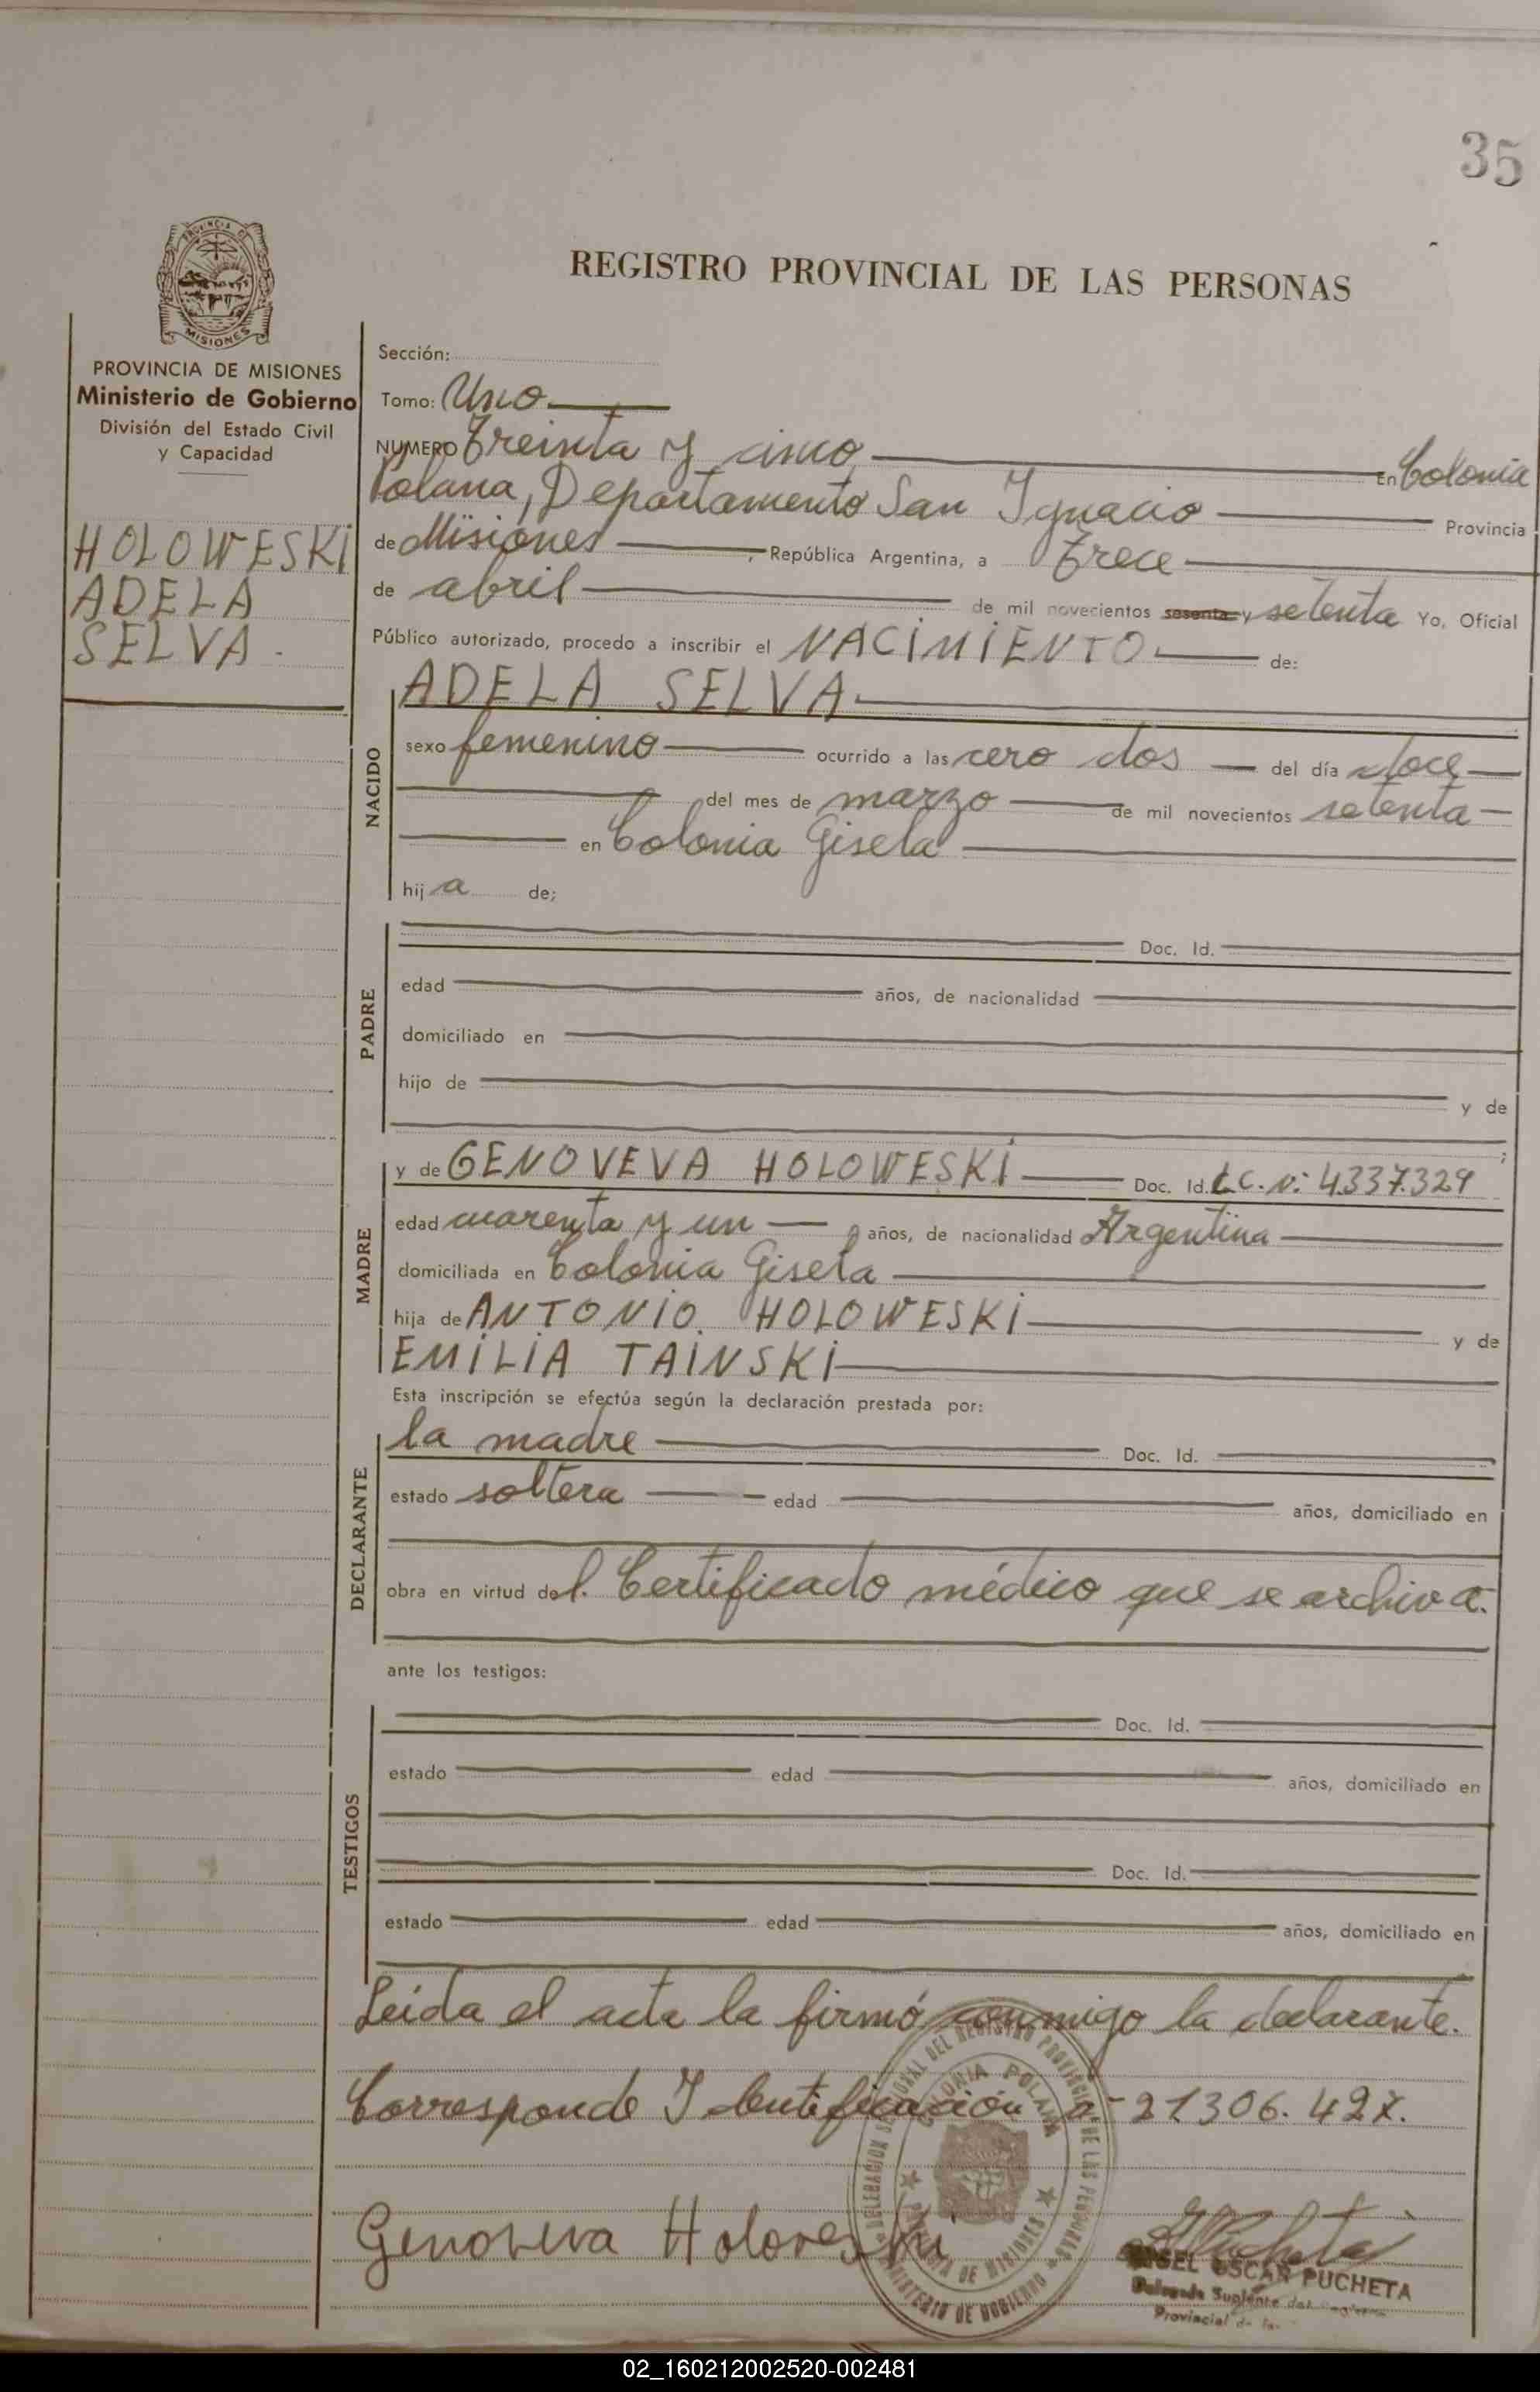 35
PROVINCIA DE
MISIONES
PROVINCIA DE MISIONES
Ministerio de Gobierno
División del Estado Civil
y Capacidad
HOLOWESKI
ADELA
SELVA.
REGISTRO PROVINCIAL DE LAS PERSONAS
Sección:
Tomo: Uno
NUMERO Treinta y cinco En Colonia
Polana, Departamento San Ignacio Provincia
de Misiones, República Argentina, a Trece
de abril de mil novecientos sesenta y setenta Yo, Oficial
Público autorizado, procedo a inscribir el NACIMIENTO de:
NACIDO
ADELA SELVA
sexo femenino ocurrido a las cero dos del día doce
del mes de marzo de mil novecientos setenta
en Colonia Gisela
hija de;
PADRE
Doc. Id.
edad años, de nacionalidad
domiciliado en
hijo de y de
;
MADRE
y de GENOVEVA HOLOWESKI Doc. Id. L.C.N: 4.337.329
edad cuarenta y un años, de nacionalidad Argentina
domiciliada en Colonia Gisela
hija de ANTONIO HOLOWESKI y de
EMILIA TAINSKI
Esta inscripción se efectúa según la declaración prestada por:
DECLARANTE
la madre Doc. Id.
estado soltera edad años, domiciliado en
obra en virtud del. Certificado médico que se archiva.
ante los testigos:
TESTIGOS
Doc. Id.
estado edad años, domiciliado en
Doc. Id.
estado edad años, domiciliado en
Leida el acta la firmó conmigo la declarante.
Corresponde Identificación n- 21306.427.
Genoveva Holoveski
DELEGACION SECCIONAL DEL REGISTRO PROVINCIAL DE LAS PERSONAS
COLONIA POLANA
PROVINCIA DE MISIONES
MINISTERIO DE GOBIERNO
OSCAR PUCHETA
Suplente del
Provincial de las
02_160212002520-002481